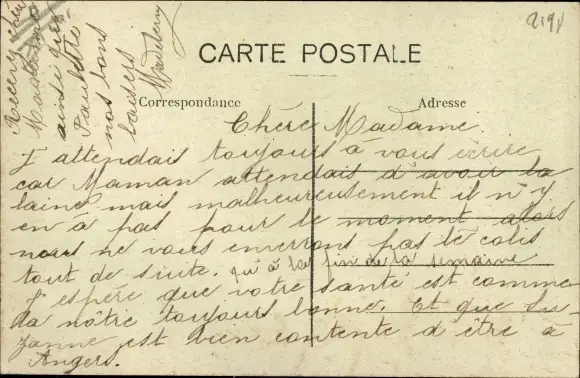 2191
CARTE POSTALE
Correspondance
Adresse
Chère Madame.
J attendais toujours à vous écrire
car Maman attendais d'avoir la
laine mais malheureusement il n'y
en à pas pour le moment alors
nous ne vous enverrons pas le colis
tout de suite. qu'à la fin de la semaine
J espère que votre santé est comme
la nôtre toujours bonne. Et que Su-
zanne est bien contente d être à
Angers.
Recevez chère
Madame
ainsi que
Paulette
nos bons
baisers